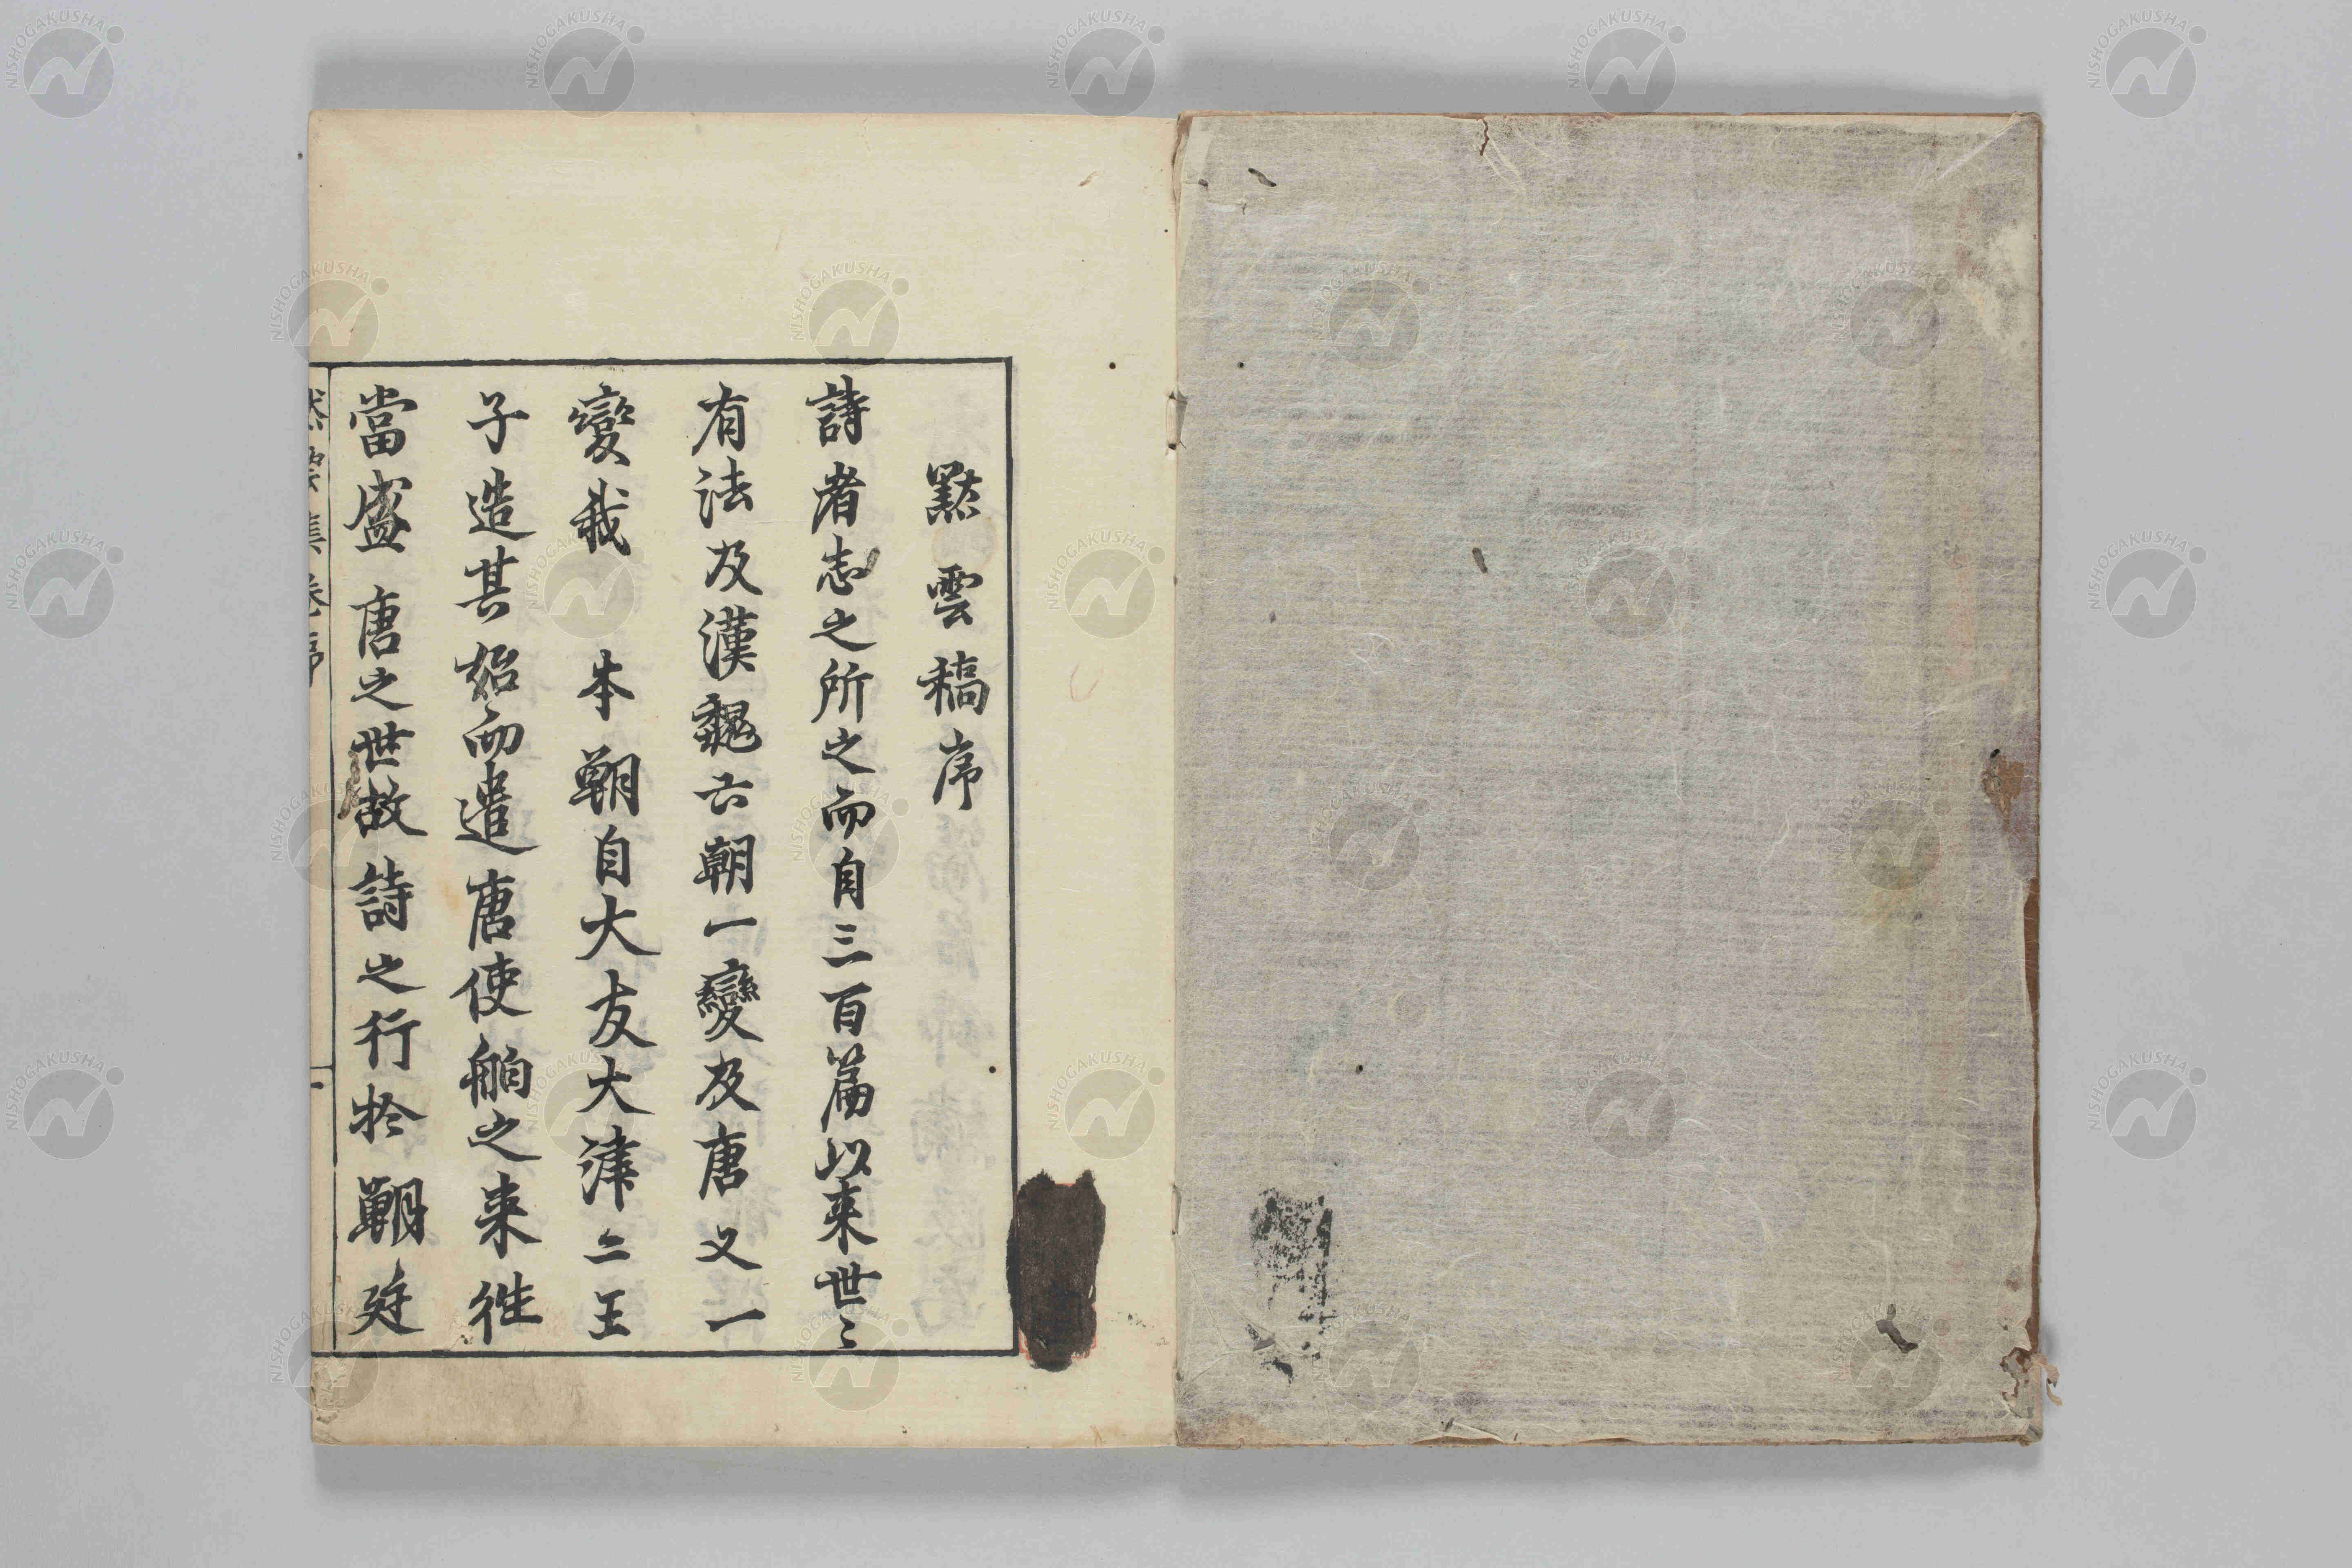 黙雲稿序
詩者志之所之而自三百篇以来世〻
有法及漢魏六朝一變及唐又一
變哉　本朝自大友大津二王
子造其始而遣唐使舶之来往
當盛唐之世故詩之行於朝廷
NISHOGAKUSHA